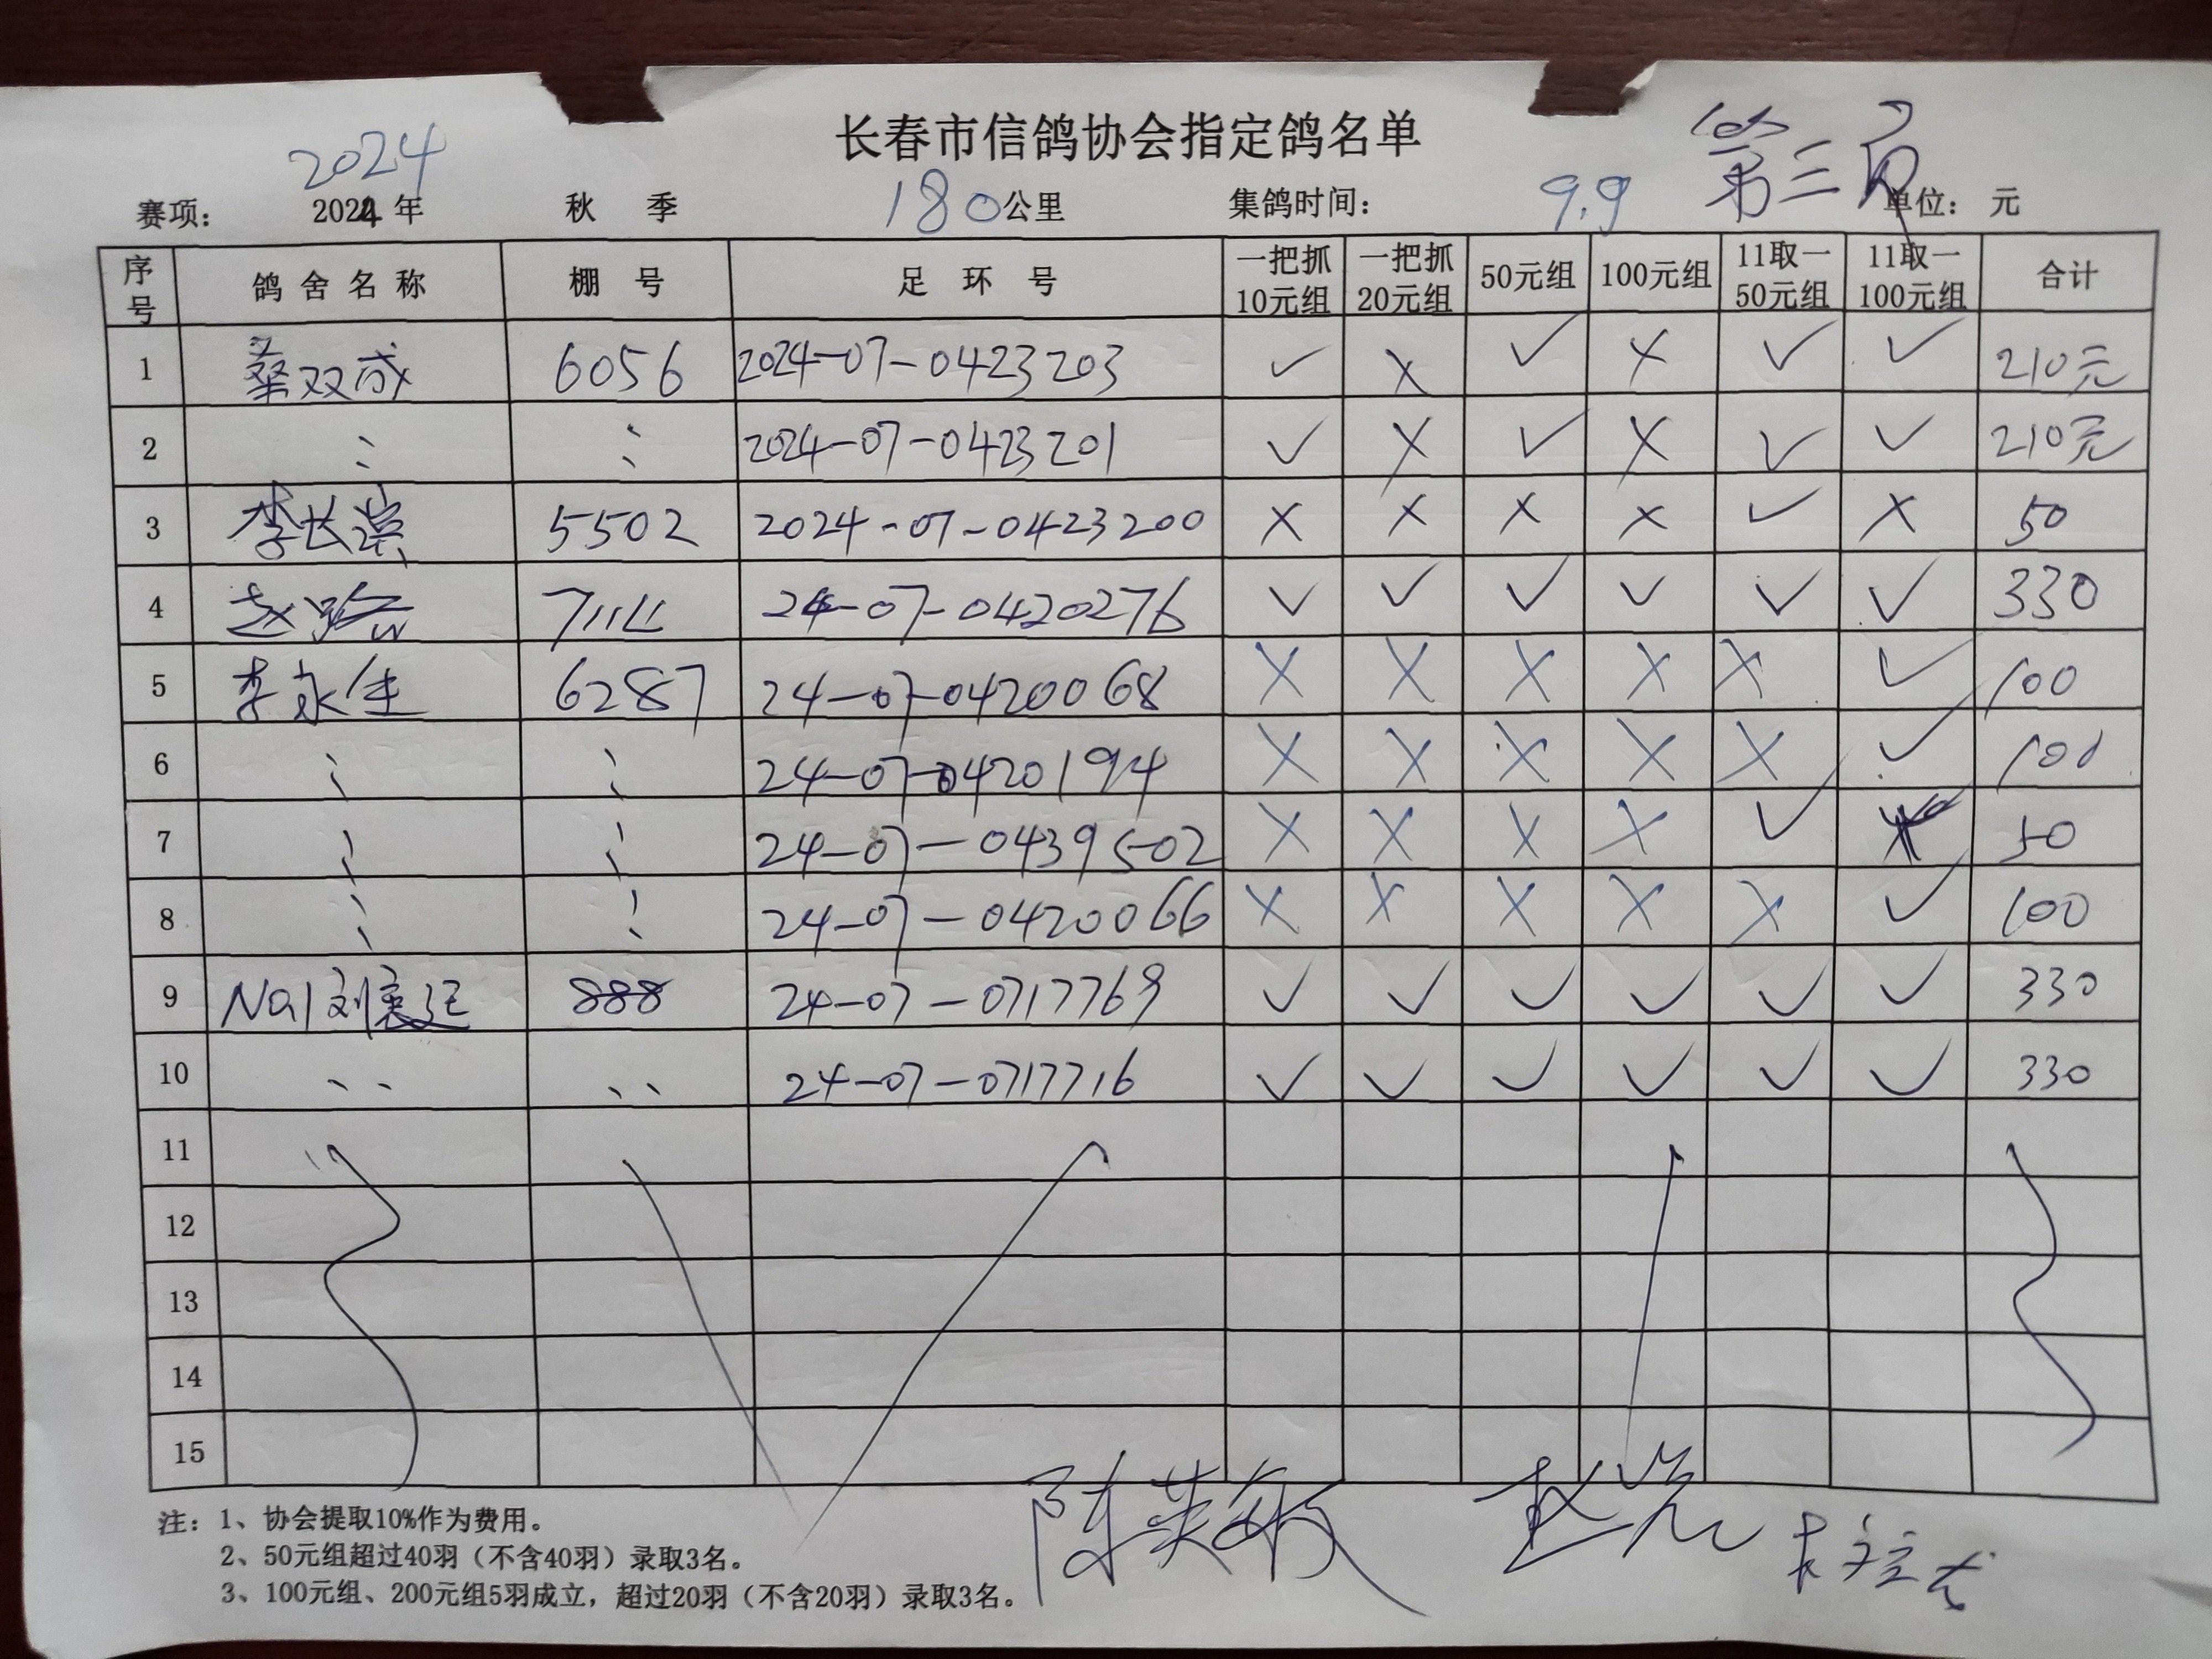 长春市信鸽协会指定鸽名单
2024
第三页
赛项: 2024年 秋 季 180公里 集鸽时间: 9.9 单位: 元
序号 鸽舍名称 棚 号 足 环 号 一把抓10元组 一把抓20元组 50元组 100元组 11取一50元组 11取一100元组 合计
1 桑双成 6056 2024-07-0423203 ✓ × ✓ × ✓ ✓ 210元
2 〃 〃 2024-07-0423201 ✓ × ✓ × ✓ ✓ 210元
3 李长 5502 2024-07-0423200 × × × × ✓ × 50
4 赵 24-07-0420276 ✓ ✓ ✓ ✓ ✓ ✓ 330
5 李永生 6287 24-07-0420068 × × × × × ✓ 100
6 〃 〃 24-07-0420194 × × × × × ✓ 100
7 〃 〃 24-07-0439502 × × × × ✓ × 50
8 〃 〃 24-07-0420066 × × × × × ✓ 100
9 No1刘 888 24-07-0717769 ✓ ✓ ✓ ✓ ✓ ✓ 330
10 〃 〃 24-07-0717716 ✓ ✓ ✓ ✓ ✓ ✓ 330
11
12
13
14
15
陈英敏
注: 1、协会提取10%作为费用。
2、50元组超过40羽（不含40羽）录取3名。
3、100元组、200元组5羽成立，超过20羽（不含20羽）录取3名。